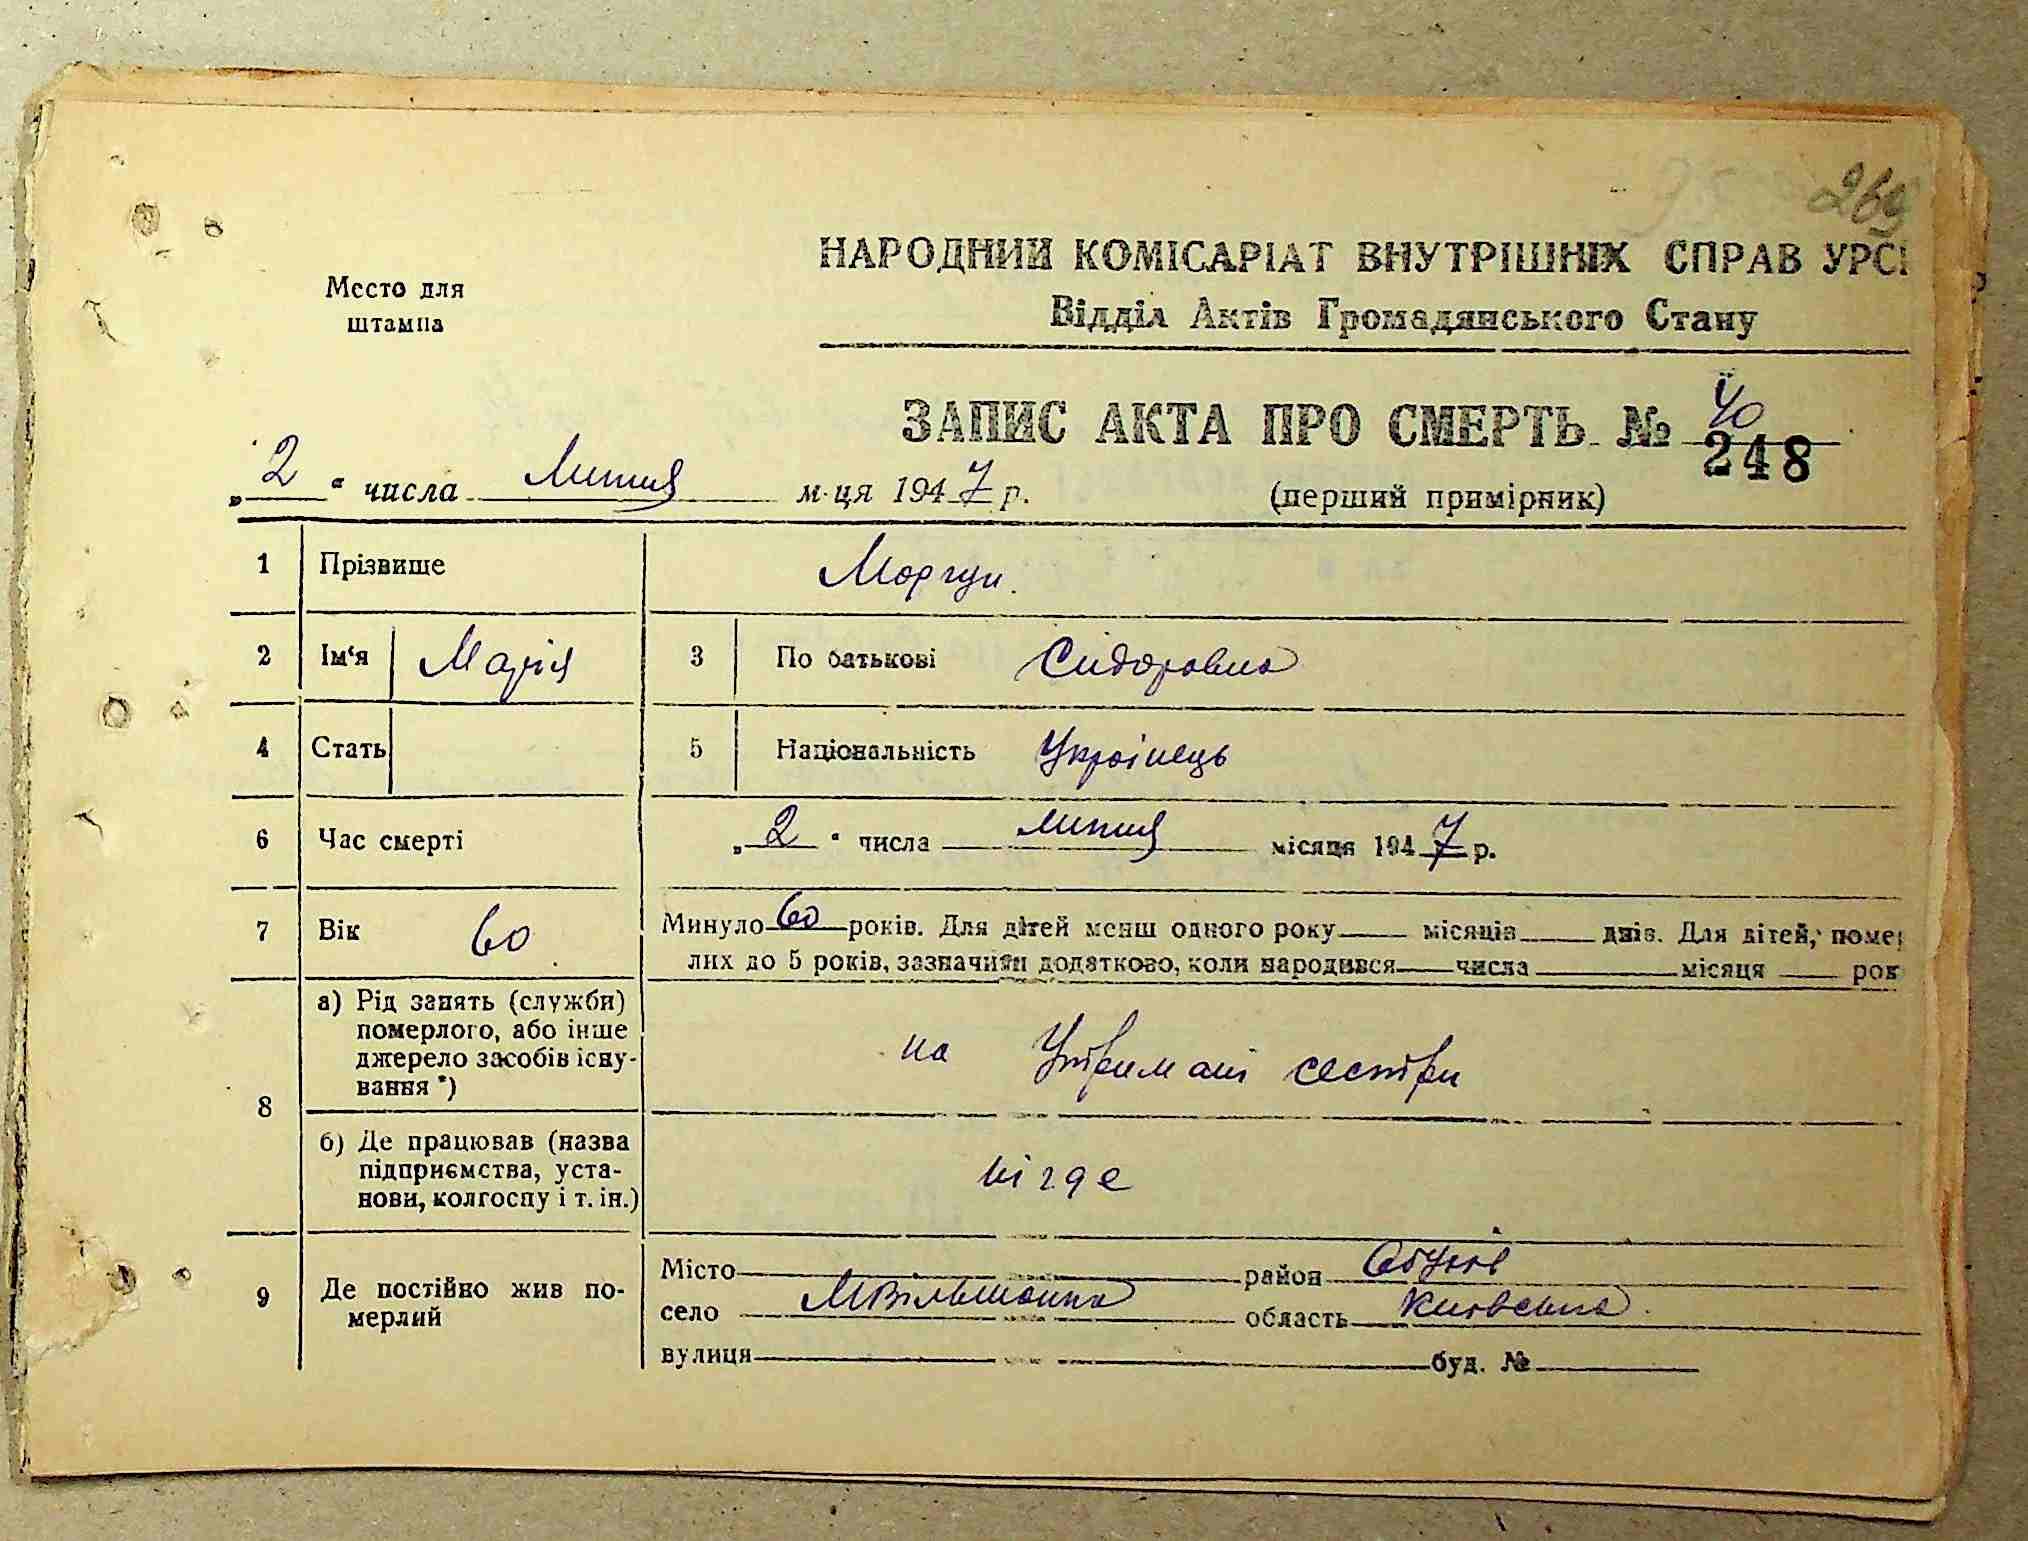 269
Место для
штампа
НАРОДНИЙ КОМІСАРІАТ ВНУТРІШНІХ СПРАВ УРСР
Відділ Актів Громадянського Стану
ЗАПИС АКТА ПРО СМЕРТЬ № 40
248
„2“ числа Липня м-ця 1947 р. (перший примірник)
1 Прізвище Моргун.
2 Ім'я Марія 3 По батькові Сидоровна
4 Стать 5 Національність Українець
6 Час смерті „2“ числа липня місяця 1947 р.
7 Вік 60 Минуло 60 років. Для дітей менш одного року місяців днів. Для дітей, помер
лих до 5 років, зазначити додатково, коли народився числа місяця рок
8 а) Рід занять (служби)
померлого, або інше
джерело засобів існу-
вання *)
на утримані сестри
б) Де працював (назва
підприємства, уста-
нови, колгоспу і т. ін.)
нігде
9 Де постійно жив по-
мерлий
Місто район Обухів
село МВільшанка область Київська.
вулиця буд. №